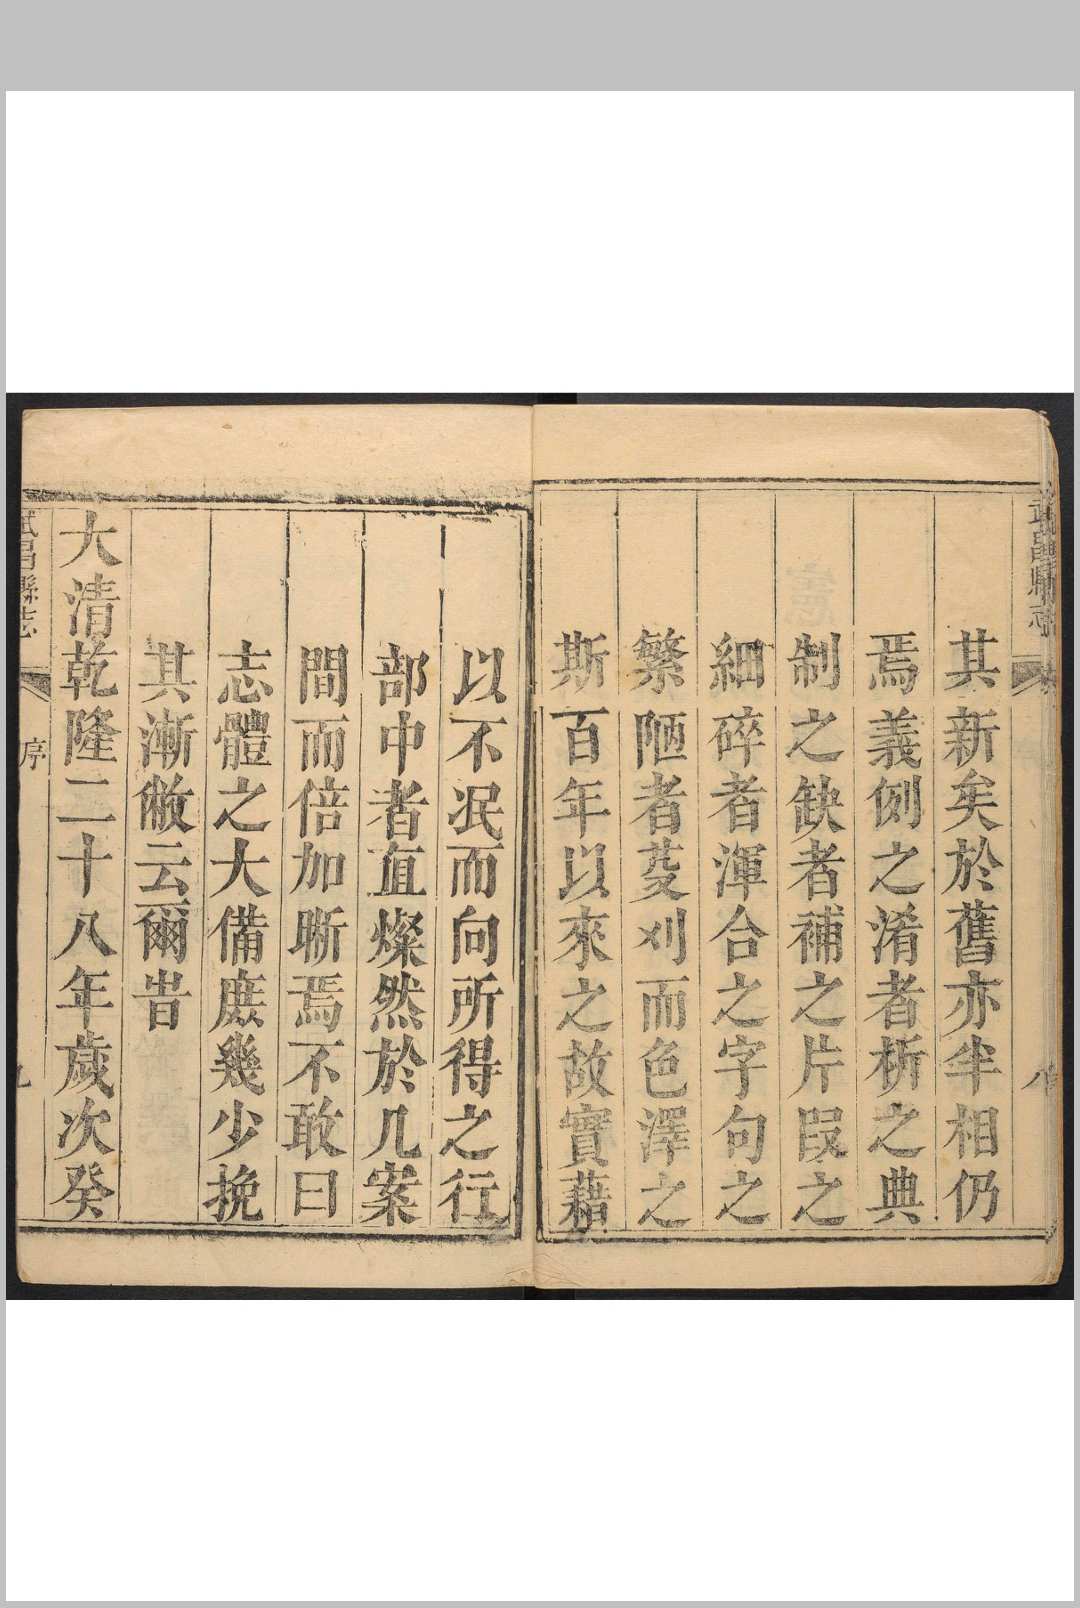 武昌縣志 八
其新矣於舊亦半相仍
焉義例之淆者析之典
制之缺者補之片叚之
細碎者渾合之字句之
繁陋者芟刈而色澤之
斯百年以來之故實藉
以不泯而向所得之行
部中者直燦然於几案
間而倍加晰焉不敢曰
志體之大備庶幾少挽
其漸敝云爾旹
大清乾隆二十八年歲次癸
武昌縣志 序 九